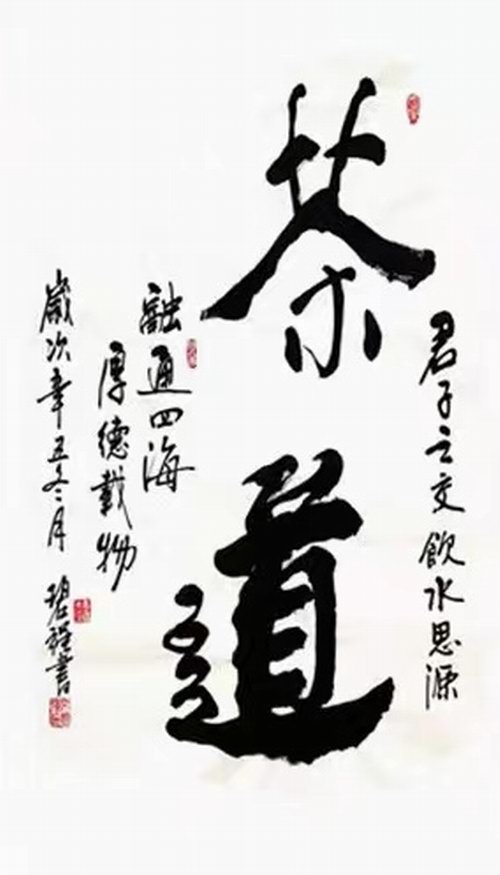 茶道
君子之交飲水思源
融通四海
厚德載物
歲次辛丑冬月
碧强書